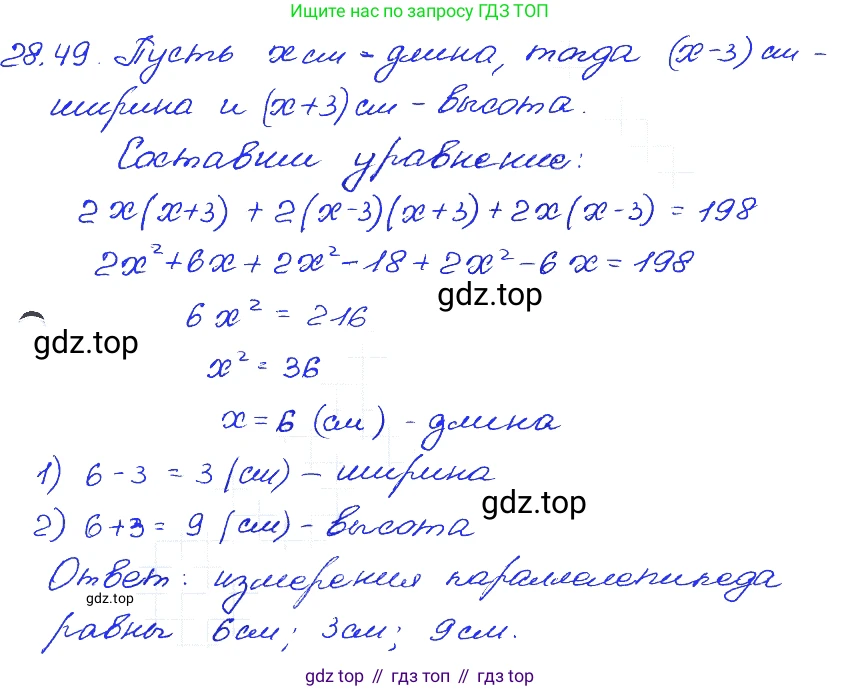 Ищите нас по запросу ГДЗ ТОП
28.49. Пусть x см - длина, тогда (x-3) см -
ширина и (x+3) см - высота.
Составим уравнение:
2x(x+3) + 2(x-3)(x+3) + 2x(x-3) = 198
2x²+6x+2x²-18+2x²-6x=198
gdz.top
6x² = 216
gdz.top
x² = 36
x = 6 (см) - длина
1) 6-3 = 3 (см) - ширина
gdz.top
2) 6+3 = 9 (см) - высота
Ответ: измерения параллелепипеда
gdz.top
равны 6см; 3см; 9см.
gdz top // гдз топ // gdz top